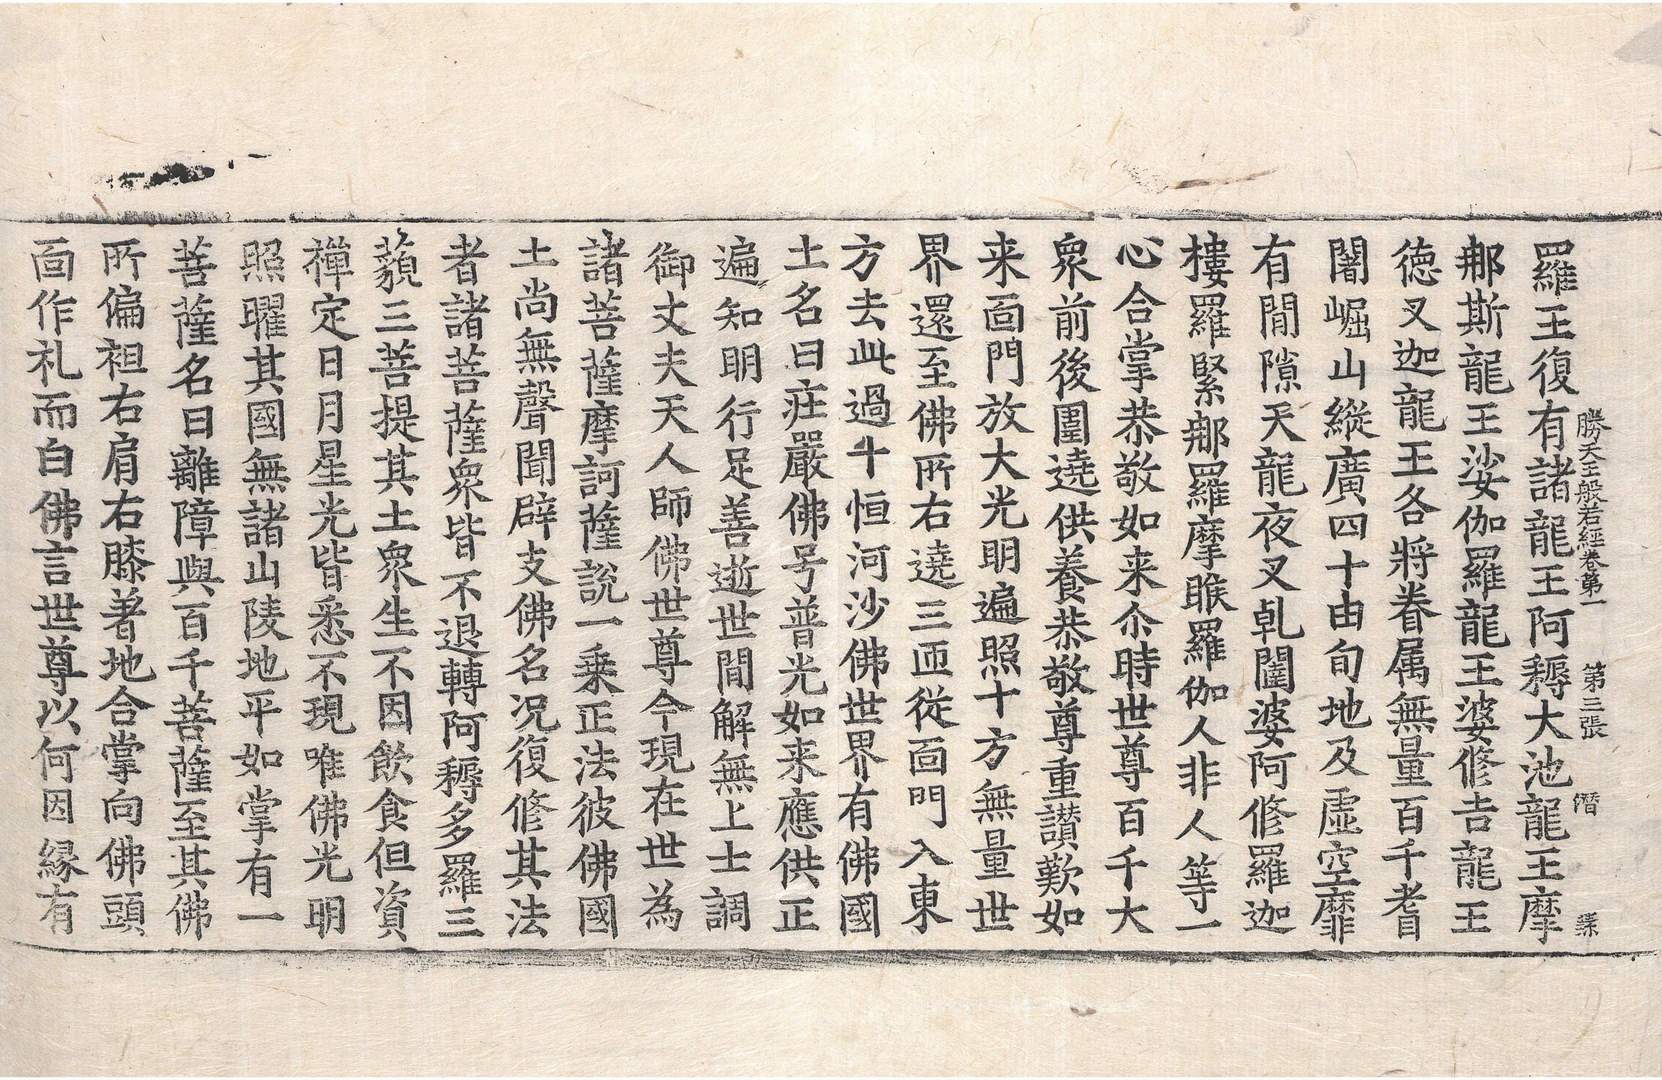 勝天王般若經卷第一 第三張 僭
羅王復有諸龍王阿耨大池龍王摩
那斯龍王娑伽羅龍王婆修吉龍王
德叉迦龍王各將眷属無量百千耆
闍崛山縱廣四十由旬地及虛空靡
有間隙天龍夜叉乹闥婆阿修羅迦
樓羅緊那羅摩睺羅伽人非人等一
心合掌恭敬如来尒時世尊百千大
衆前後圍遶供養恭敬尊重讃歎如
来面門放大光明遍照十方無量世
界還至佛所右遶三匝從面門入東
方去此過十恒河沙佛世界有佛國
土名曰莊嚴佛号普光如来應供正
遍知明行足善逝世間解無上士調
御丈夫天人師佛世尊今現在世為
諸菩薩摩訶薩說一乘正法彼佛國
土尚無聲聞辟支佛名况復修其法
者諸菩薩衆皆不退轉阿耨多羅三
藐三菩提其土衆生不因飲食但資
禪定日月星光皆悉不現唯佛光明
照曜其國無諸山陵地平如掌有一
菩薩名曰離障與百千菩薩至其佛
所偏袒右肩右膝著地合掌向佛頭
面作礼而白佛言世尊以何因緣有